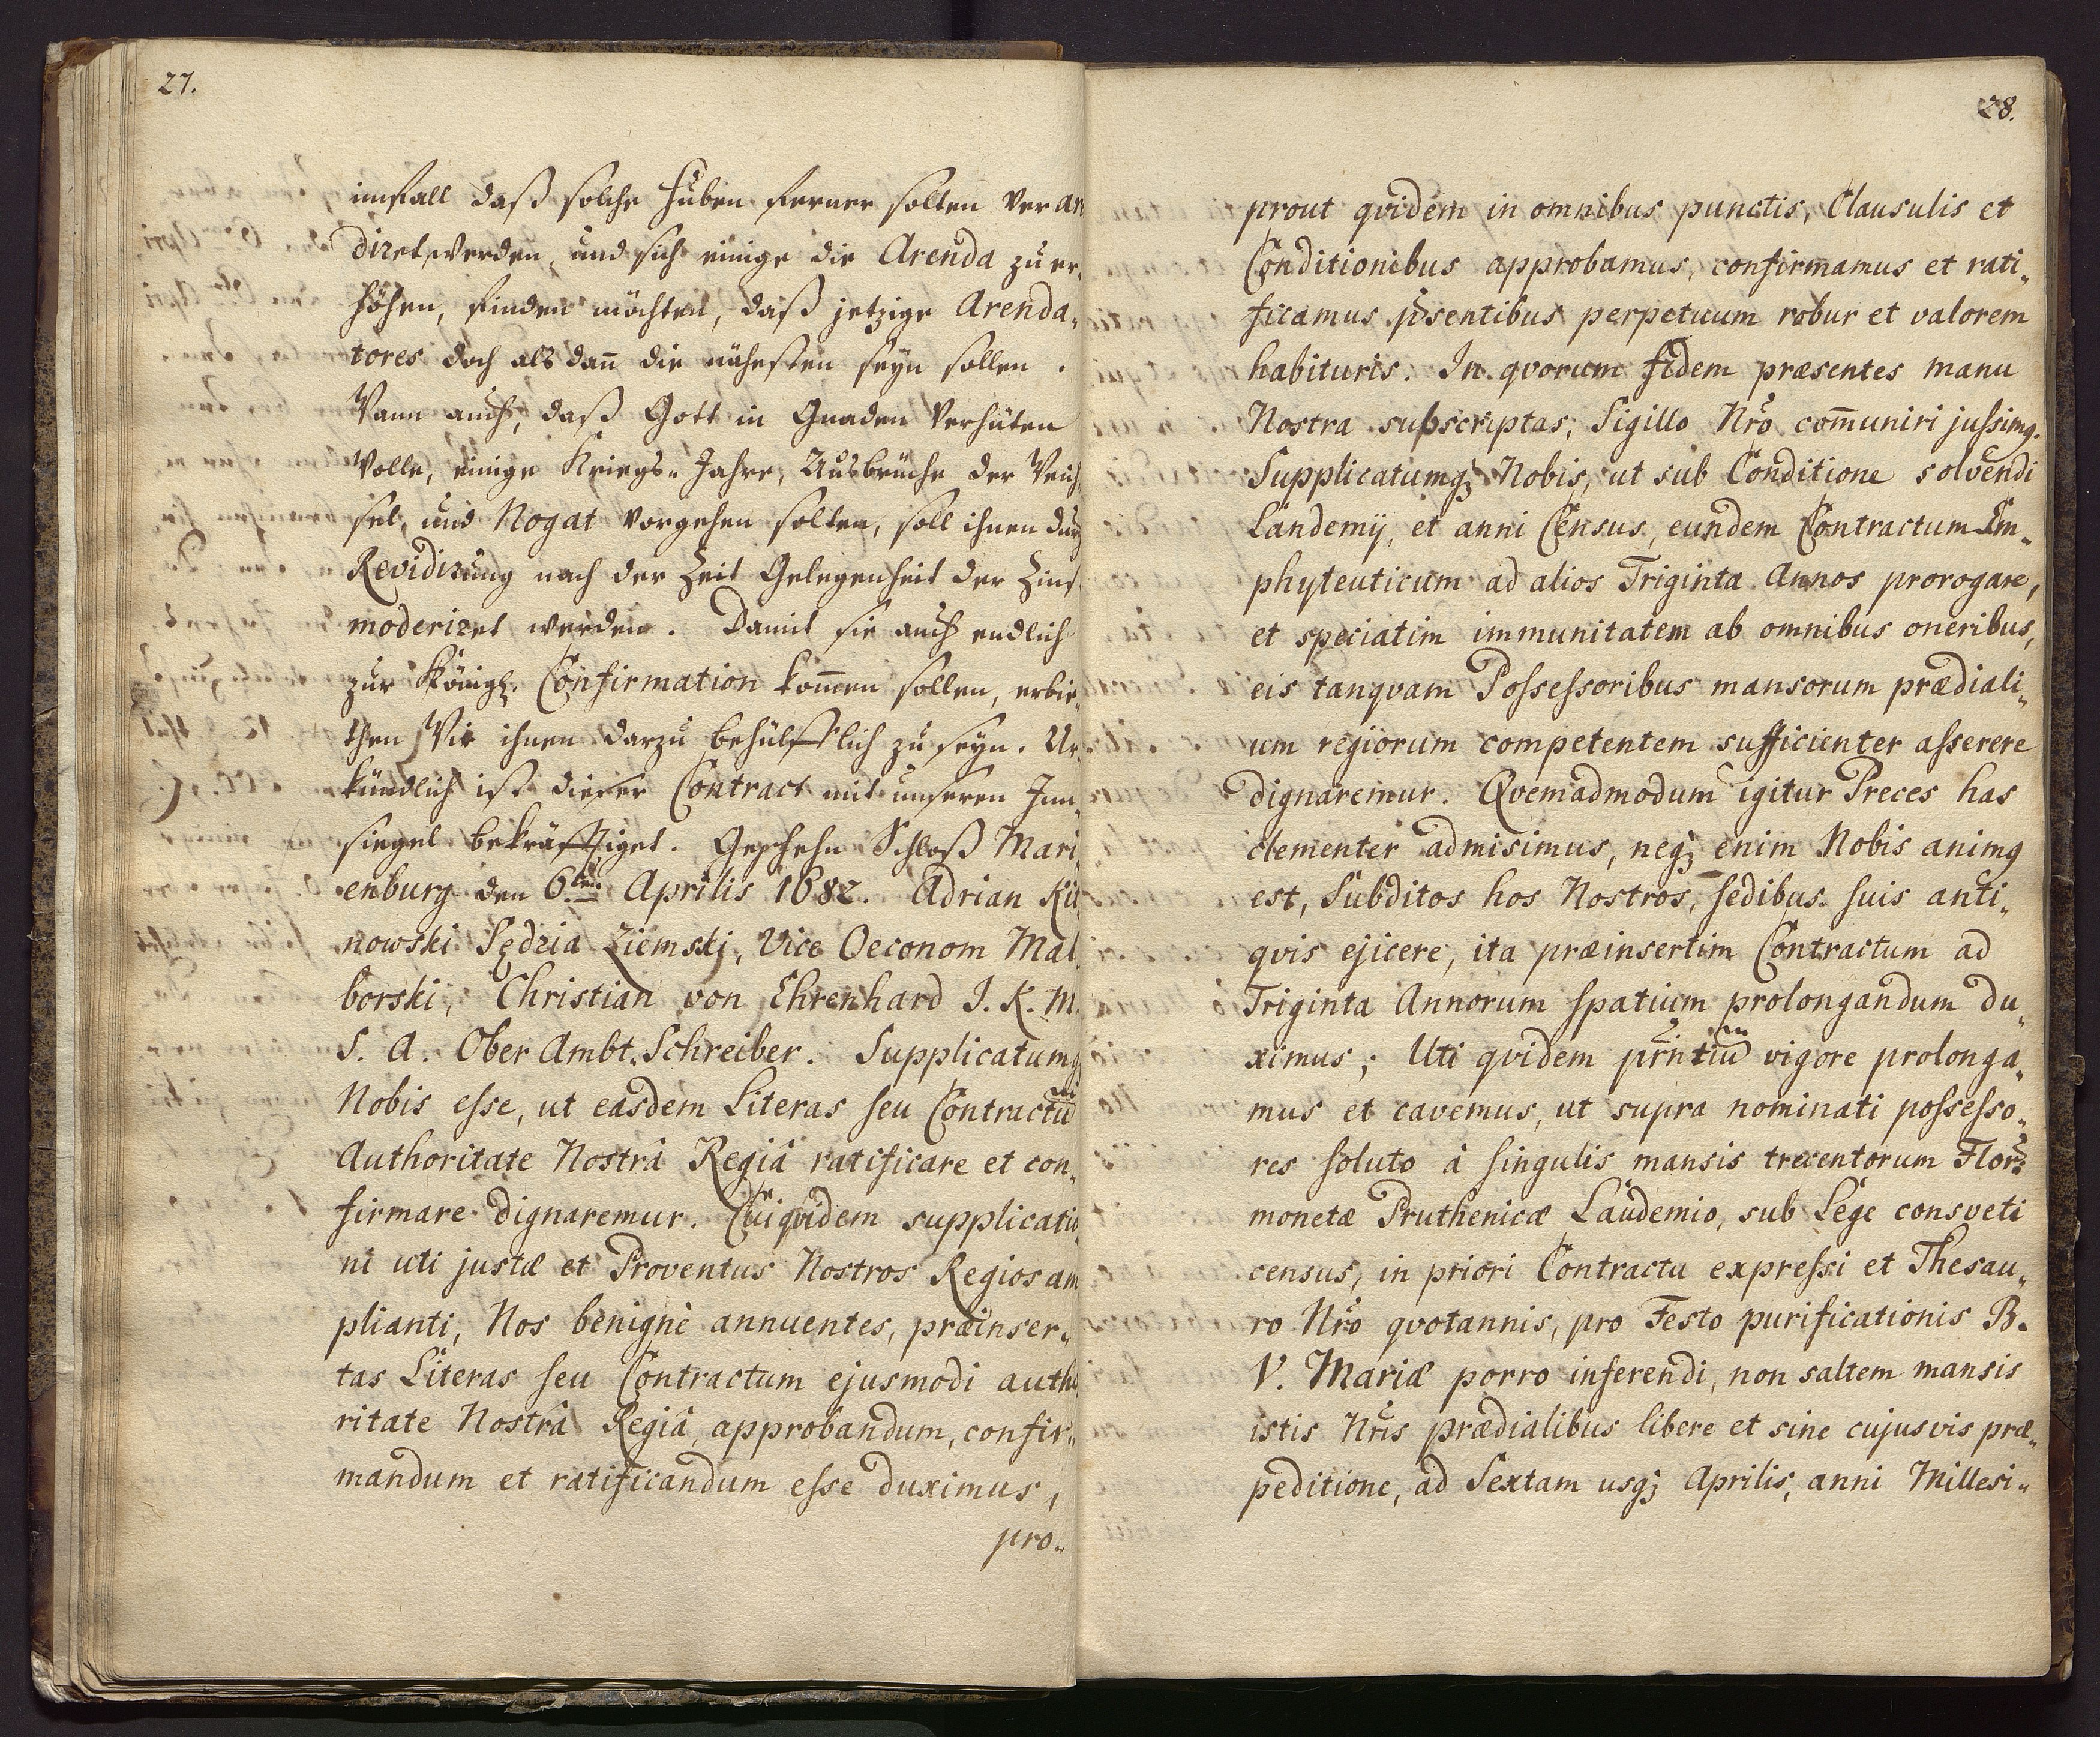 27.
imfall daß solche Huben ferner solten ver an
diret werden, und sich einige die Arenda zu er„
höhen, finden möchten, daß jetzige Arenda„
tores doch als dañ die nähesten seyn sollen.
Wann auch, daß Gott in Gnaden verhüten
wolle, einige Kriegs„Jahre, Ausbrüche der Weich„
sel, und Nogat vorgehen solten, soll ihnen durch
Revidirung nach der Zeit Gelegenheit der Zins
moderiret werden. Damit sie auch endlich
zur Königl. Confirmation kom̃en sollen, erbie„
then Wir ihnen darzu behülfflich zu seyn. Ur„
kündlich ist dieser Contract mit unseren Inn„
siegel bekräfftiget. Geschehn Schloß Mari„
enburg den 6.ten Aprilis 1682. Adrian Kit„
nowski Sędzia Ziemskj, Vice Oeconom Mal„
borski, Christian von Ehrenhard J. K. M.
S. A. Ober Ambt. Schreiber. Supplicatumq;
Nobis esse, ut easdem Literas seu Contractũ
Authoritate Nostrâ Regiâ ratificare et con„
firmare dignaremur. Cui qvidem supplicatio„
ni uti justæ et Proventus Nostros Regios am
plianti, Nos benignè annuentes, præinser„
tas Literas seu Contractum ejusmodi autho„
ritate Nostrâ Regiâ, approbandum, confir„
mandum et ratificandum esse duximus,
pro„
28.
prout qvidem in omnibus punctis, Clausulis et
Conditionibus approbamus, confirmamus et rati„
ficamus p̃sentibus perpetuum robur et valorem
habituris. In qvorum fidem præsentes manu
Nostra subscriptas, Sigillo Nr̃o com̃uniri jussimq.
Supplicatumq; Nobis, ut sub Conditione solvendi
Landemij, et anni Census, eundem Contractum Em„
phyteuticum ad alios Triginta Annos prorogare,
et speciatim immunitatem ab omnibus oneribus,
eis tanqvam Possessoribus mansorum prædiali„
um regiorum competentem sufficienter asserere
dignaremur. Qvemadmodum igitur Preces has
clementer admisimus, neq; enim Nobis animq
est, Subditos hos Nostros, sedibus suis anti„
qvis ejicere, ita præinsertim Contractum ad
Triginta Annorum spatium prolongandum du„
ximus; Uti qvidem pr̃ntiũ vigore prolonga„
mus et cavemus, ut supra nominati possesso„
res soluto à singulis mansis trecentorum Flor:
monetæ Pruthenicæ Laudemio, sub Lege consveti
census, in priori Contractu expressi et Thesau„
ro Nr̃o qvotannis, pro Festo purificationis B.
V. Mariæ porro inferendi, non saltem mansis
istis Nr̃is prædialibus libere et sine cujusvis præ„
peditione, ad Sextam usq; Aprilis, anni Millesi„